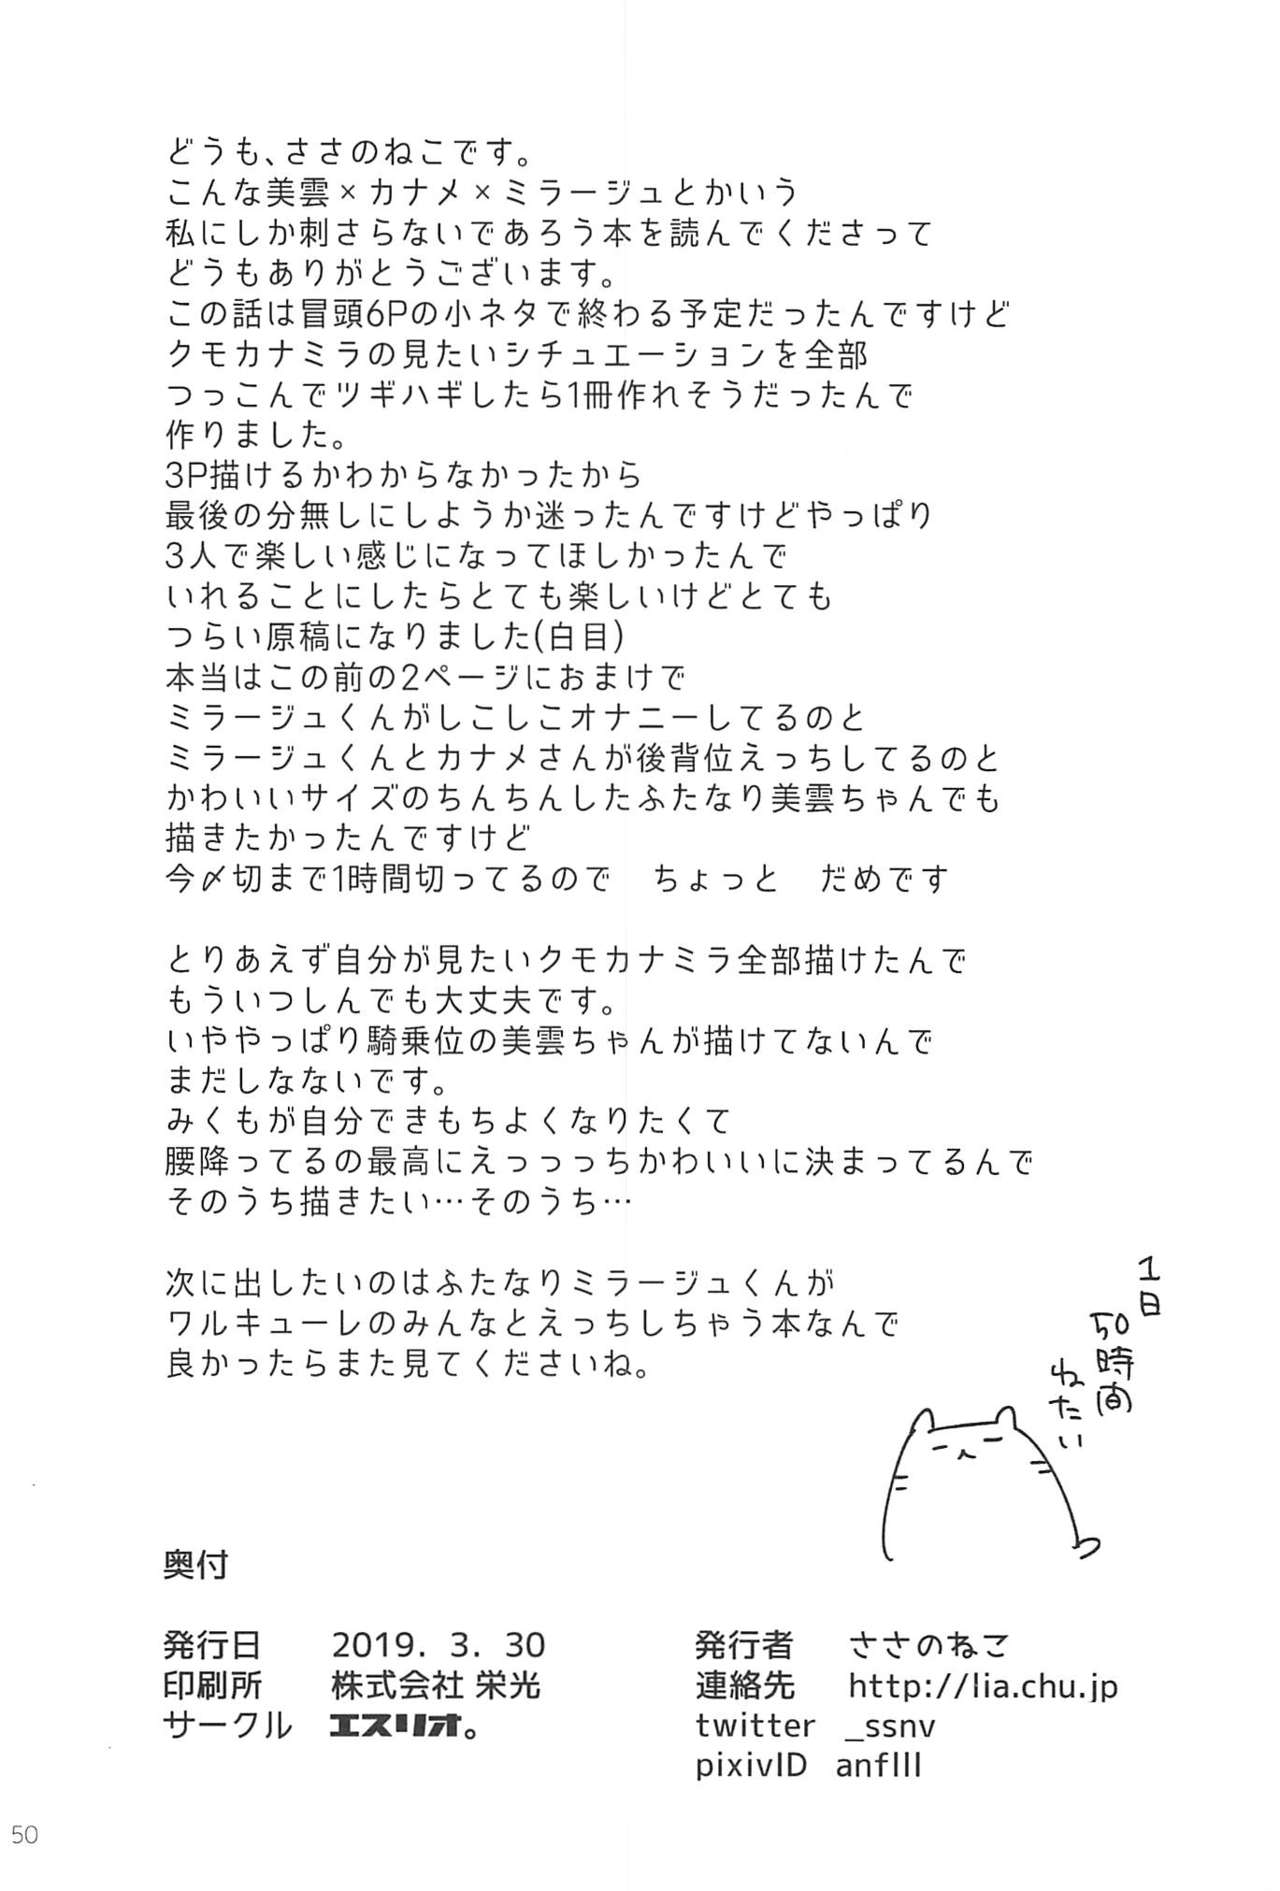 どうも、ささのねこです。
こんな美雲×カナメ×ミラージュとかいう
私にしか刺さらないであろう本を読んでくださって
どうもありがとうございます。
この話は冒頭6Pの小ネタで終わる予定だったんですけど
クモカナミラの見たいシチュエーションを全部
つっこんでツギハギしたら1冊作れそうだったんで
作りました。
3P描けるかわからなかったから
最後の分無しにしようか迷ったんですけどやっぱり
3人で楽しい感じになってほしかったんで
いれることにしたらとても楽しいけどとても
つらい原稿になりました(白目)
本当はこの前の2ページにおまけで
ミラージュくんがしこしこオナニーしてるのと
ミラージュくんとカナメさんが後背位えっちしてるのと
かわいいサイズのちんちんしたふたなり美雲ちゃんでも
描きたかったんですけど
今〆切まで1時間切ってるので　ちょっと　だめです

とりあえず自分が見たいクモカナミラ全部描けたんで
もういつしんでも大丈夫です。
いややっぱり騎乗位の美雲ちゃんが描けてないんで
まだしなないです。
みくもが自分できもちよくなりたくて
腰降ってるの最高にえっっっちかわいいに決まってるんで
そのうち描きたい…そのうち…

次に出したいのはふたなりミラージュくんが
ワルキューレのみんなとえっちしちゃう本なんで
良かったらまた見てくださいね。

1日
50時間
ねたい

奥付

発行日　2019. 3. 30
印刷所　株式会社 栄光
サークル　エスリオ。
発行者　ささのねこ
連絡先　http://lia.chu.jp
twitter　_ssnv
pixivID　anflll
50